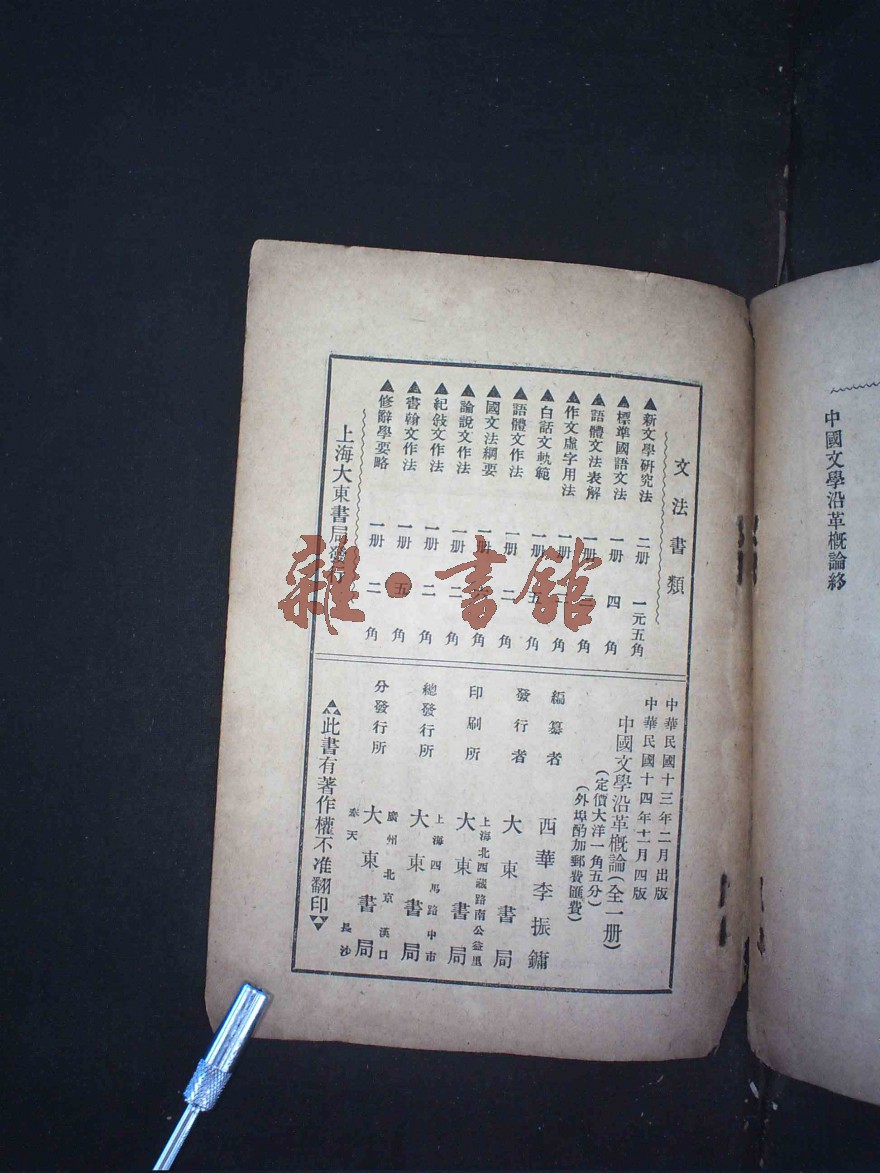 中國文學沿革概論終
文法書類
▲新文學研究法 二册 一元五角
▲標準國語文法 一册 四角
▲語體文法表解 一册 角
▲作文虛字用法 一册 角
▲白話文軌範 一册 五角
▲語體文作法 一册 二角
▲國文法綱要 一册 角
▲論說文作法 一册 二角
▲紀敍文作法 一册 二角
▲書翰文作法 一册 五角
▲修辭學要略 一册 二角
上海大東書局發行
中華民國十三年二月出版
中華民國十四年十一月四版
中國文學沿革概論(全一册)
(定價大洋一角五分)
(外埠酌加郵費匯費)
編纂者 西華李振鏞
發行者 大東書局
印刷所 上海北西藏路南公益里 大東書局
總發行所 上海四馬路中市 大東書局
分發行所 廣州 北京 漢口 大東書局 奉天 長沙
此書有著作權不准翻印
雜·書館